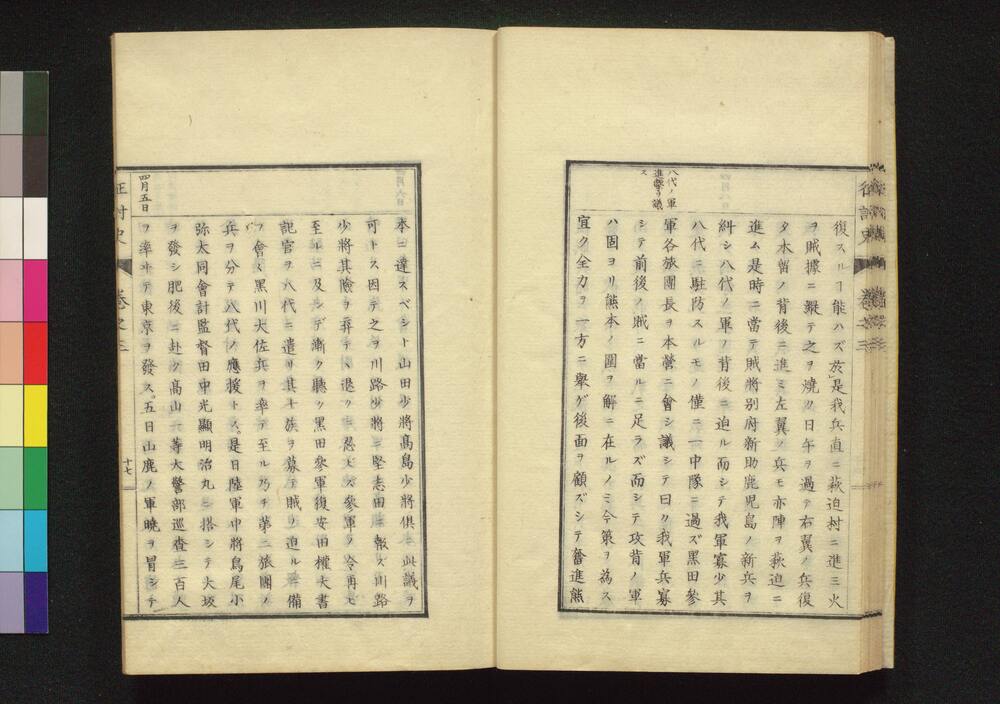 復スルヿ能ハズ於是我兵直ニ萩迫村ニ進ミ火
ヲ賊據ニ縱テ之ヲ燒ク日午ヲ過テ右翼ノ兵復
タ木留ノ背後ニ進ミ左翼ノ兵モ亦陣ヲ萩迫ニ
進ム是時ニ當テ賊將別府新助鹿児島ノ新兵ヲ
糾シ八代ノ軍ノ背後ニ迫ル而シテ我軍寡少其
八代ニ駐防スルモノ僅ニ一中隊ニ過ズ黑田參
八代ノ軍
進擊ヲ議
ス
軍各旅團長ヲ本營ニ會シ議シテ曰ク我軍兵寡
シテ前後ノ賊ニ當ルニ足ラズ而シテ攻背ノ軍
ハ固ヨリ熊本ノ圍ヲ解ニ在ルノミ今策ヲ為ス
宜ク全力ヲ一方ニ舉ゲ後面ヲ顧ズシテ奮進熊
本ニ達スベシト山田少將高島少將俱ニ此議ヲ
可トス因テ之ヲ川路少將ニ堅志田ニ報ズ川路
少將其險ヲ弃テ退クニ忍ビズ參軍ノ令再ビ
至ルニ及ンデ漸ク聽ク黑田參軍復安田權大書
記官ヲ八代ニ遣リ其士族ヲ募テ賊ノ迫ルニ備
フ會々黑川大佐兵ヲ率テ至ル乃チ第二旅團ノ
兵ヲ分テ八代ノ應援トス是日陸軍中將鳥尾小
弥太同會計監督田中光顯明治丸ニ搭シテ大坂
ヲ發シ肥後ニ赴ク高山一等大警部巡査三百人
四月五日
ヲ率ヰテ東京ヲ發ス五日山鹿ノ軍曉ヲ冒シテ
征討史
卷之三
十七